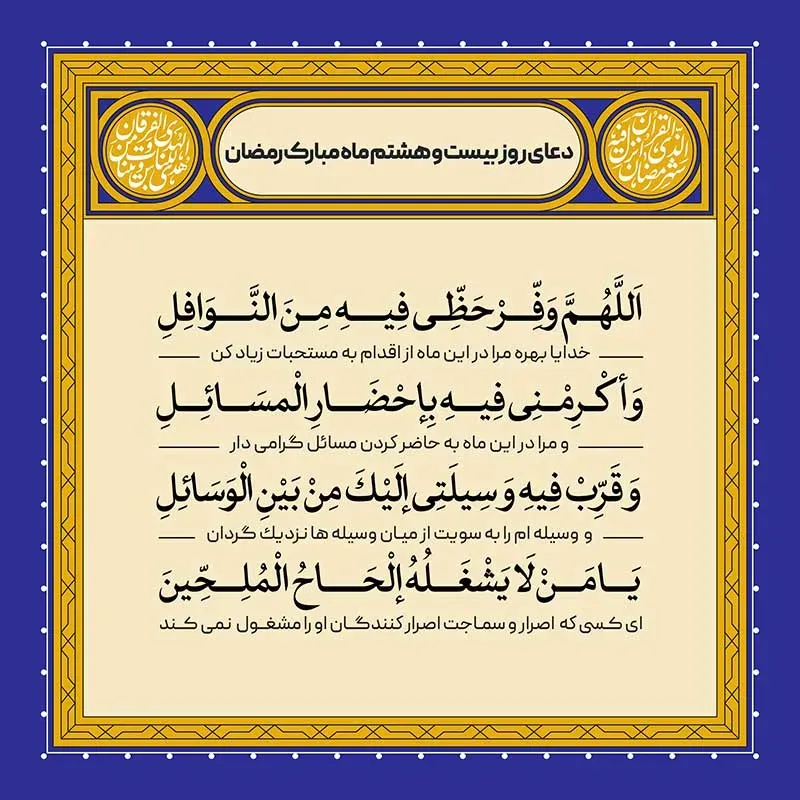 دعای روز بیست و هشتم ماه مبارک رمضان
شهر رمضان الذی انزل فیه القرآن
هدی للناس و بینات من الهدی و الفرقان
اَللَّهُمَّ وَفِّرْ حَظِّی فِیهِ مِنَ النَّوَافِلِ
خدایا بهره مرا در این ماه از اقدام به مستحبات زیاد کن
وَأَكْرِمْنِی فِیهِ بِإِحْضَارِ الْمَسَائِلِ
و مرا در این ماه به حاضر کردن مسائل گرامی دار
وَ قَرِّبْ فِیهِ وَسِیلَتِی إِلَیْكَ مِنْ بَیْنِ الْوَسَائِلِ
و وسیله ام را به سویت از میان وسیله ها نزدیك گردان
یَا مَنْ لَا یَشْغَلُهُ إِلْحَاحُ الْمُلِحِّینَ
ای کسی که اصرار و سماجت اصرار کنندگان او را مشغول نمی کند